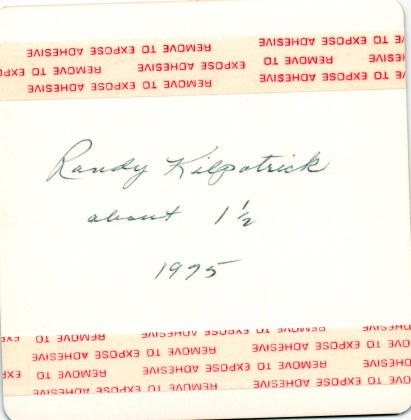 REMOVE TO EXPOSE ADHESIVE REMOVE TO EXPOSE ADHESIVE
REMOVE TO EXPOSE ADHESIVE REMOVE TO EXPOSE ADHESIVE
REMOVE TO EXPOSE ADHESIVE REMOVE TO EXPOSE ADHESIVE
Randy Kilpatrick
about 1 1/2
1975
REMOVE TO EXPOSE ADHESIVE REMOVE
REMOVE TO EXPOSE ADHESIVE REMOVE TO EXPOSE ADHESIVE
REMOVE TO EXPOSE ADHESIVE REMOVE TO
REMOVE TO EXPOSE ADHESIVE REMOVE TO EXPOSE ADHESIVE